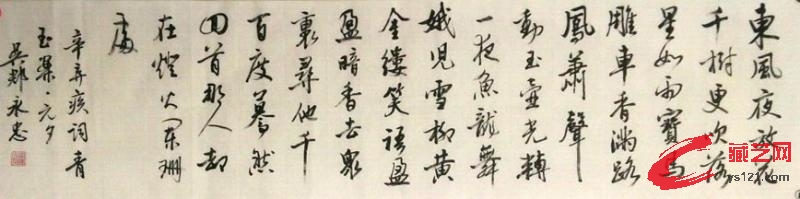 東風夜放花
千樹更吹落
星如雨寶馬
雕車香滿路
鳳蕭聲
動玉壺光轉
一夜魚龍舞
娥兒雪柳黄
金縷笑語盈
盈暗香去衆
裏尋他千
百度驀然
回首那人却
在燈火闌珊
處
辛弃疾詞青
玉案·元夕
吳郡永忠
藏艺网
ys121.com